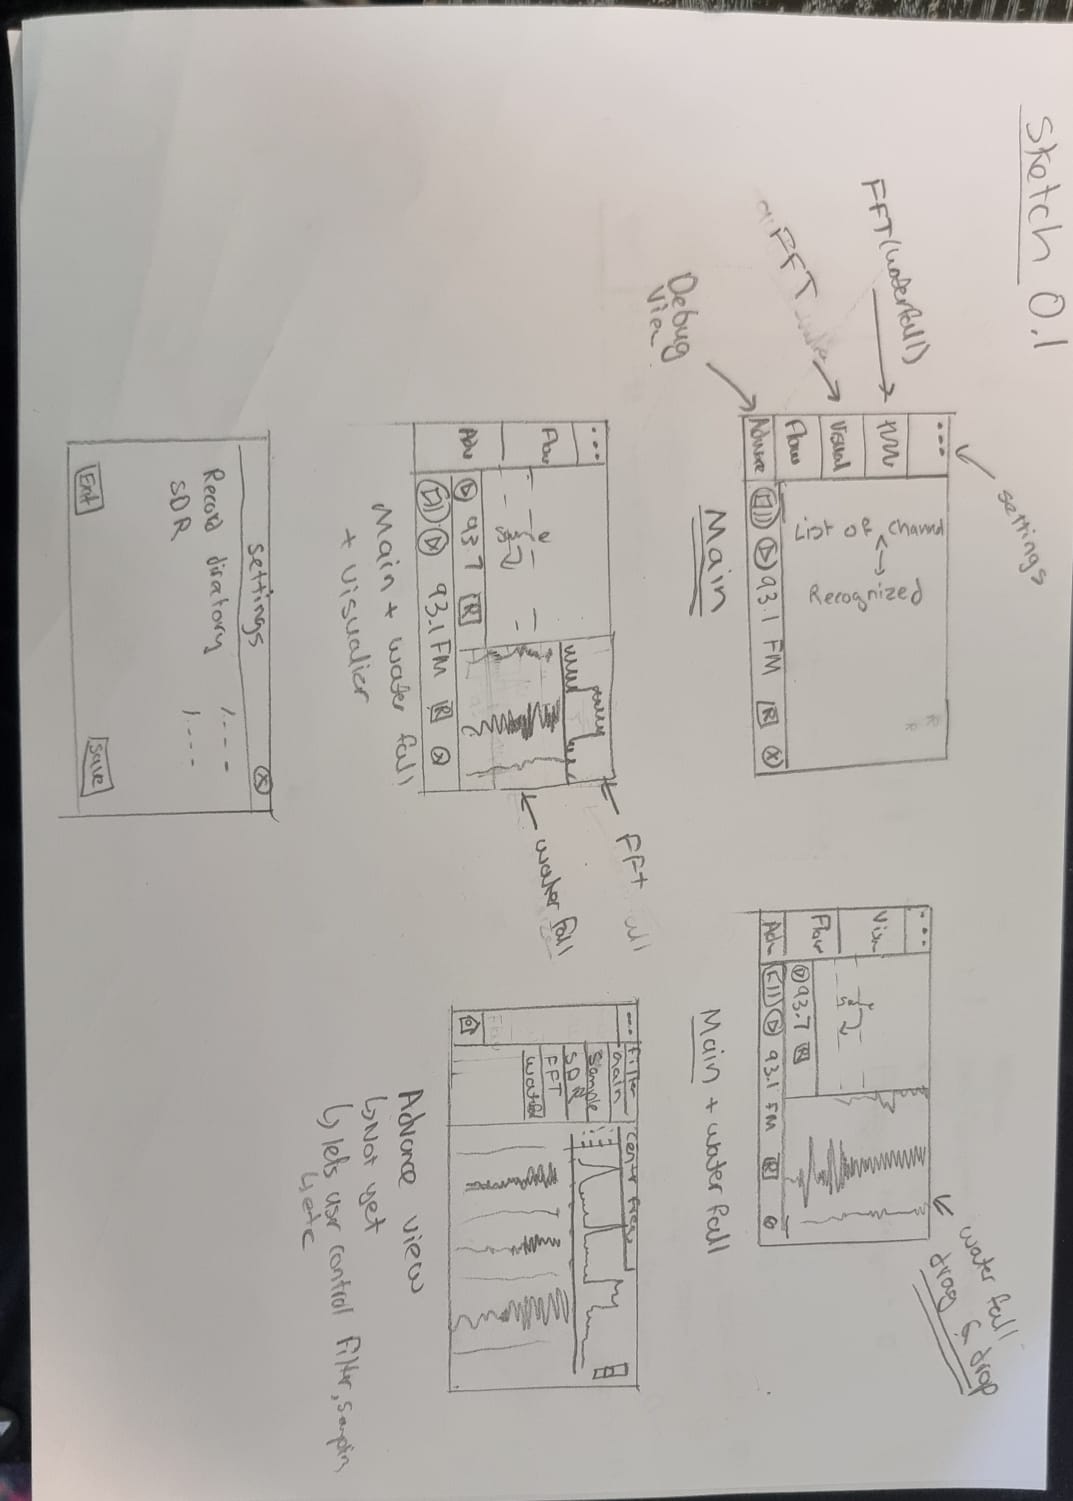 Sketch 0.1
FFT(waterfall)
FFT
Debug
View
settings
...
Visual
Flow
Advance
List of channel
Recognized
93.1 FM
R
X
Main
...
Visu
Flow
Adv
93.7
R
93.1 FM
R
Main + water fall
water fall
drag & drop
...
Flow
Adv
93.7
R
93.1 FM
R
X
FFt
water fall
Main + water fall
+ visualier
...
Filter
Gain
Sample
SDR
FFT
Centr freq
Advance view
↳Not yet
↳lets usr control filter, sampling
↳etc
settings
X
Record diratory /----
SDR /----
Exit
Save